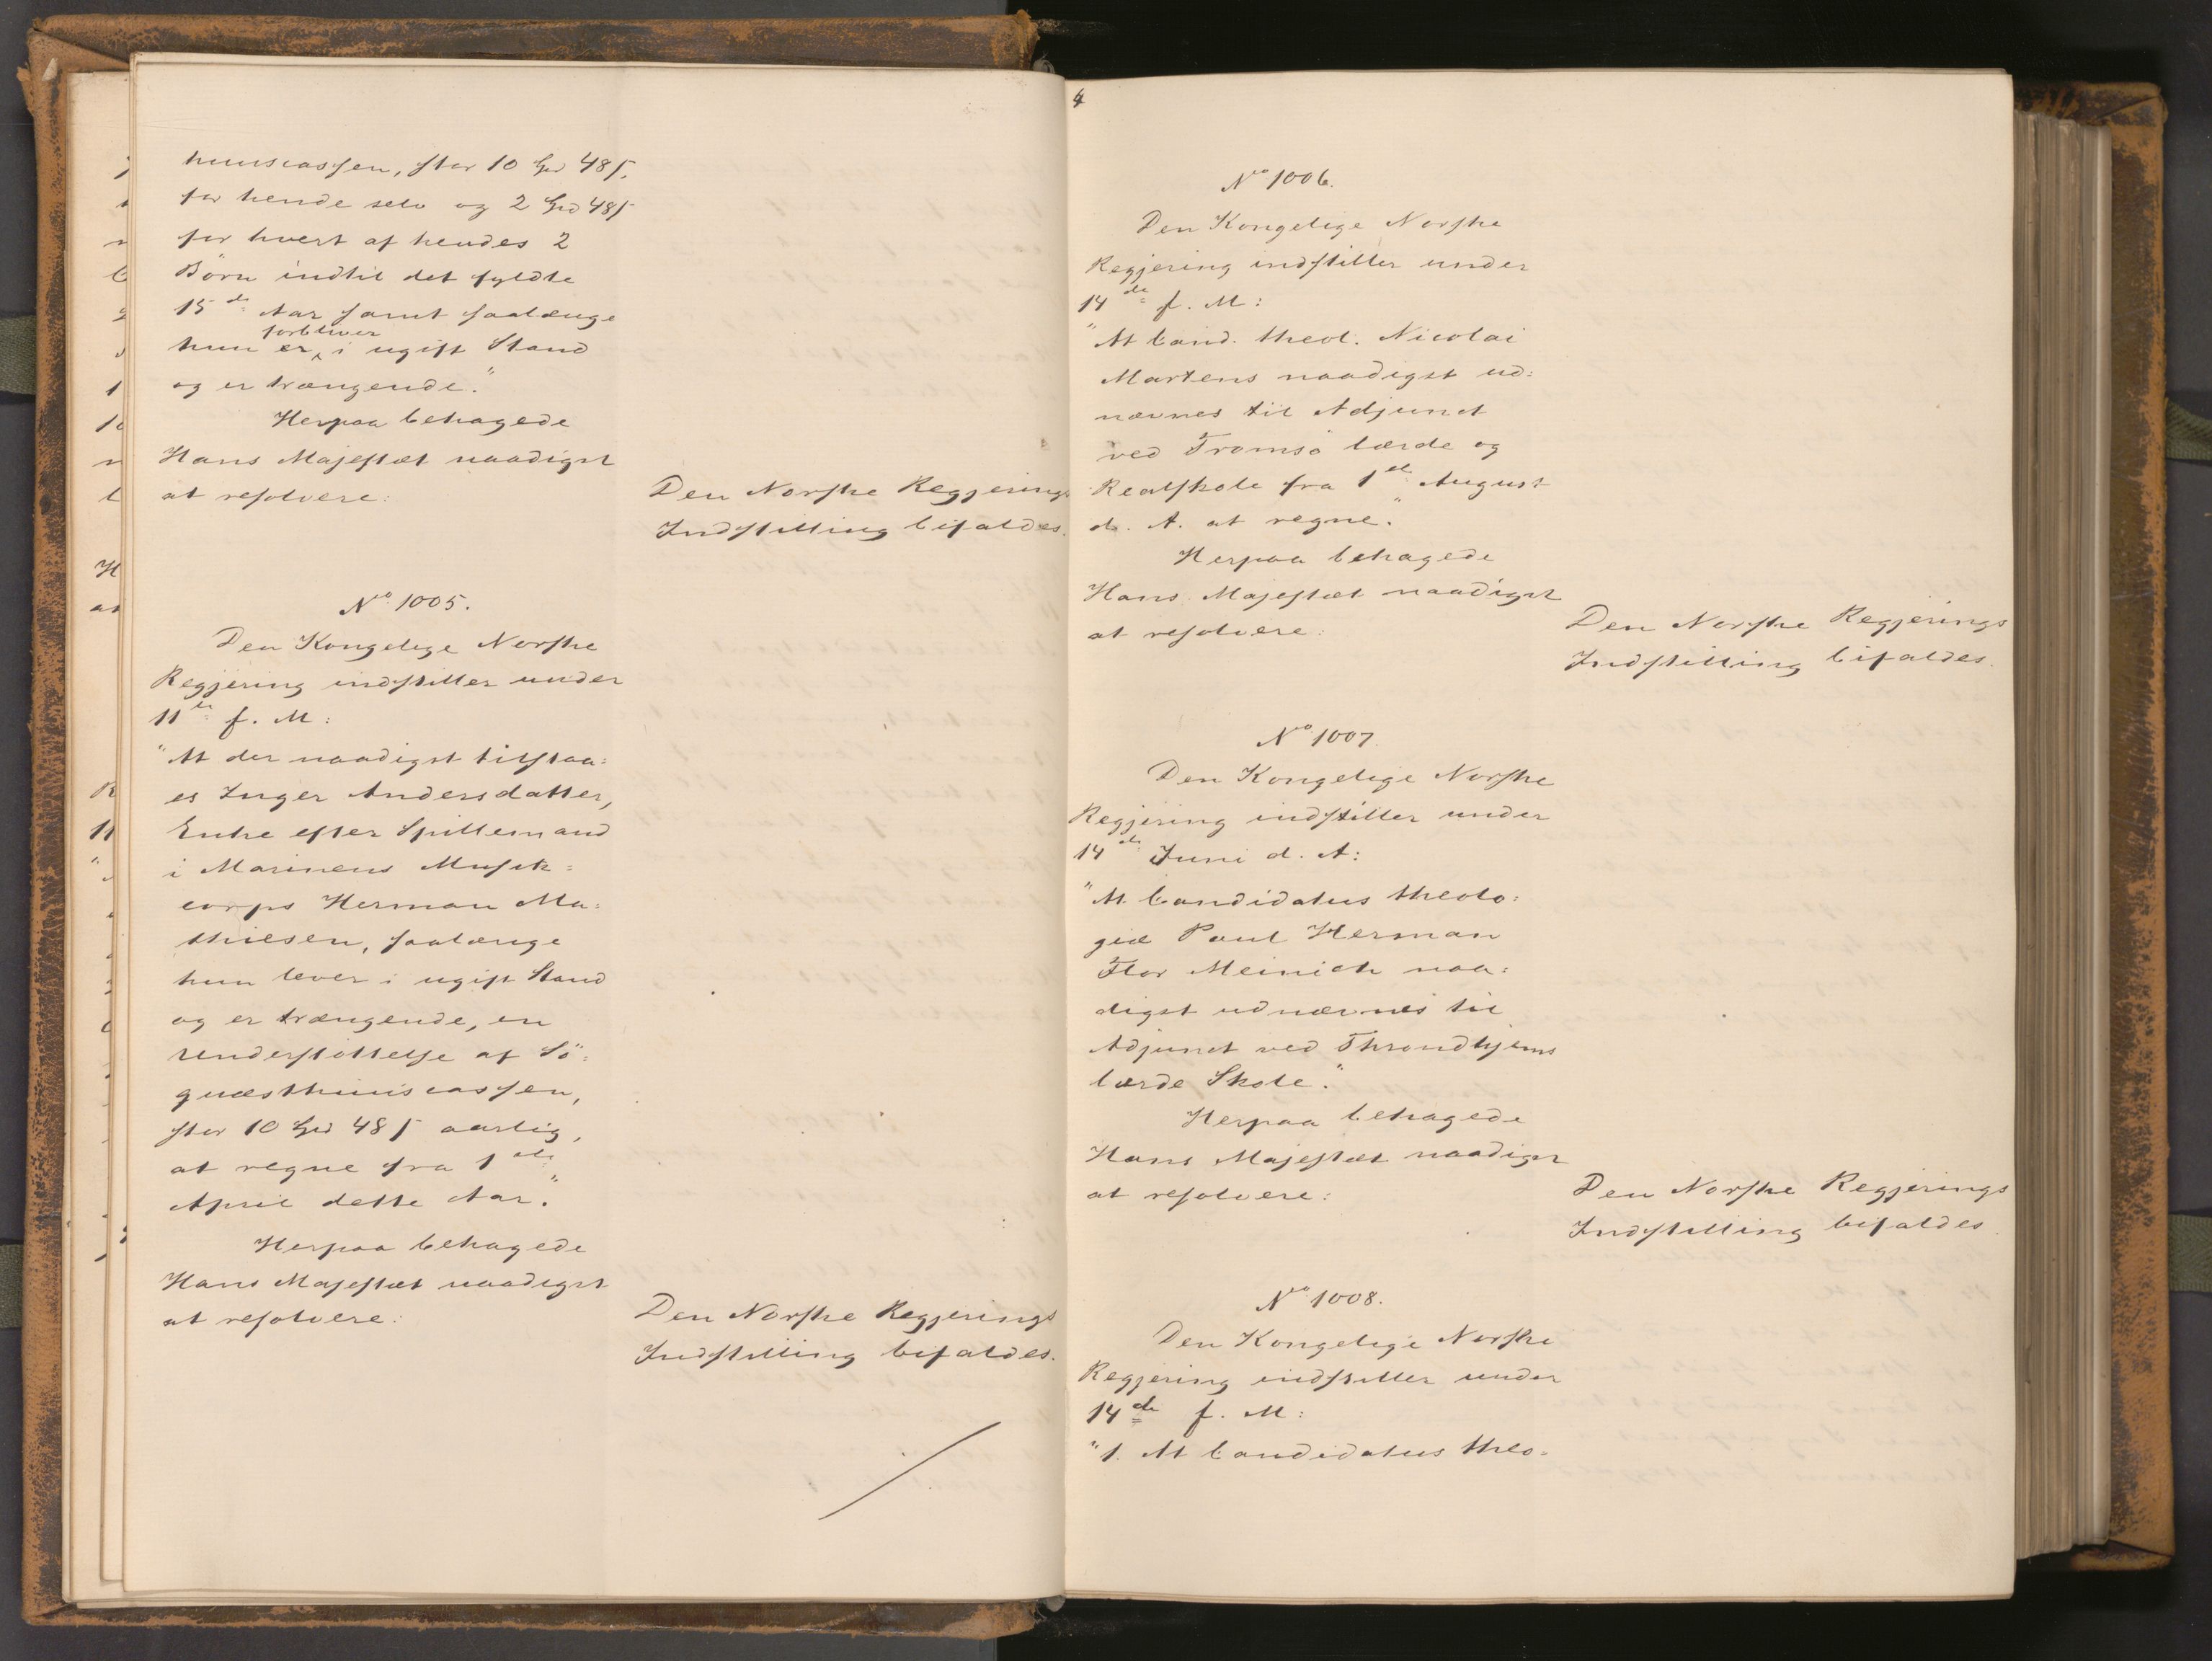 huuscassen, stor 10 Spd 48 ſ.
for hende selv og 2 Spd 48 ſ
for hvert af hendes 2
Börn indtil det fyldte
15de Aar samt saalænge
forbliver
hun er i ugift Stand
og er trængende."
Herpaa behagede
Hans Majestæt naadigst
at resolvere:
Den Norske Regjerings
Indstilling bifaldes.
No 1005.
Den Kongelige Norske
Regjering indstiller under
11te f. M:
"At der naadigst tilstaa=
es Inger Andersdatter,
Enke efter Spillemand
i Marinens Musik=
corps Herman Ma=
thiesen, saalænge
hun lever i ugift Stand
og er trængende, en
Understöttelse af Sö=
quæsthuuscassen,
stor 10 Spd 48 ſ aarlig,
at regne fra 1ste
April dette Aar."
Herpaa behagede
Hans Majestæt naadigst
at resolvere:
Den Norske Regjerings
Indstilling bifaldes.
No 1006.
Den Kongelige Norske
Regjering indstiller under
14de f. M:
"At Cand. theol. Nicolai
Martens naadigst ud=
nævnes til Adjunct
ved Tromsö lærde og
Realskole fra 1ste August
d. A. at regne."
Herpaa behagede
Hans Majestæt naadigst
at resolvere:
Den Norske Regjerings
Indstilling bifaldes.
No 1007.
Den Kongelige Norske
Regjering indstiller under
14de Juni d. A:
"At Candidatus theolo=
giæ Paul Herman
Flor Meinich naa=
digst udnævnes til
Adjunct ved Throndhjems
lærde Skole."
Herpaa behagede
Hans Majestæt naadigst
at resolvere:
Den Norske Regjerings
Indstilling bifaldes
No 1008.
Den Kongelige Norske
Regjering indstiller under
14de f. M:
"1. At Candidatus theo=